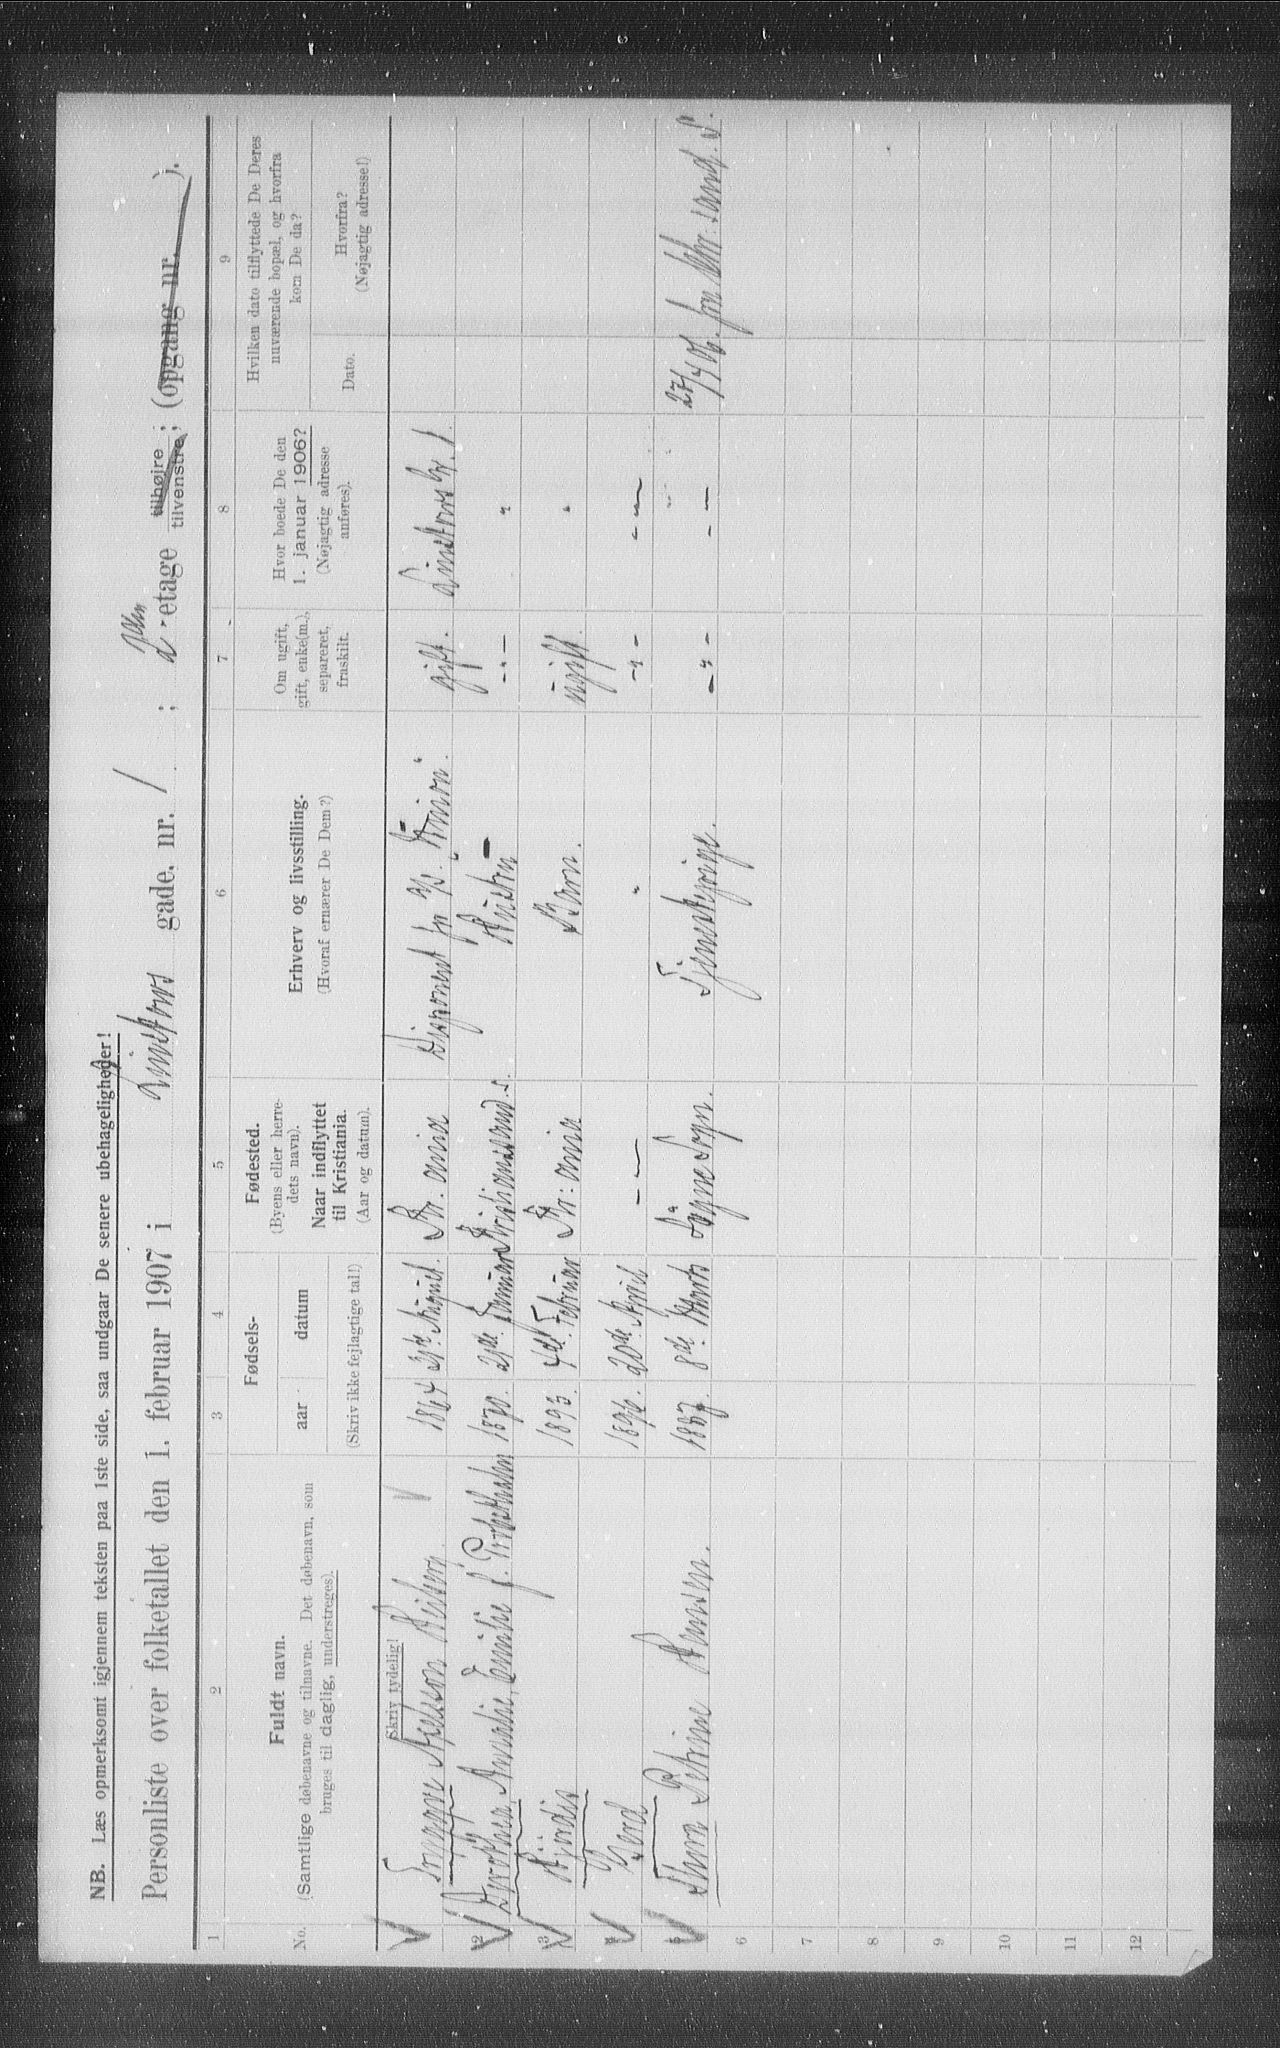 NB. Læs opmerksomt igjennem teksten paa 1ste side, saa undgaar De senere ubehageligheder!
Personliste over folketallet den 1. februar 1907 i Linstows gade, nr. 1 ; 2den etage tilhøjre tilvenstre; (opgang nr. ).
1 2 3 4 5 6 7 8 9
No.
Fuldt navn.
(Samtlige døbenavne og tilnavne. Det døbenavn, som
bruges til daglig, understreges).
Fødsels-
aar datum
(Skriv ikke fejlagtige tal!)
Fødested.
(Byens eller herre-
dets navn).
Naar indflyttet
til Kristiania.
(Aar og datum).
Erhverv og livsstilling.
(Hvoraf ernærer De Dem?)
Om ugift,
gift, enke(m.),
separeret,
fraskilt.
Hvor boede De den
1. januar 1906?
(Nøjagtig adresse
anføres).
Hvilken dato tilflyttede De Deres
nuværende bopæl, og hvorfra
kom De da?
Dato.
Hvorfra?
(Nøjagtig adresse!)
Skriv tydelig!
Trygve Axelson 1864 31te August. Kr. ania Disponent for A/S. Union. gift. Linstows G. 1.
2 Dorothea, Amalie, Emilie f. 1870. 21de Januar Kristianssand. S. Hustru - " - "
3 Hjördis 1893. 4de Februar Kr: ania Barn. ugift. "
Gerd 1896. 20de April - " - " - " - - " -
Thora Petrine Hansen. 1887. 8de Marts Søgne Sogn. Tjenestepige. - " - - " - 27/4 06. fra Chr: sand. S.
6
7
8
9
10
11
12